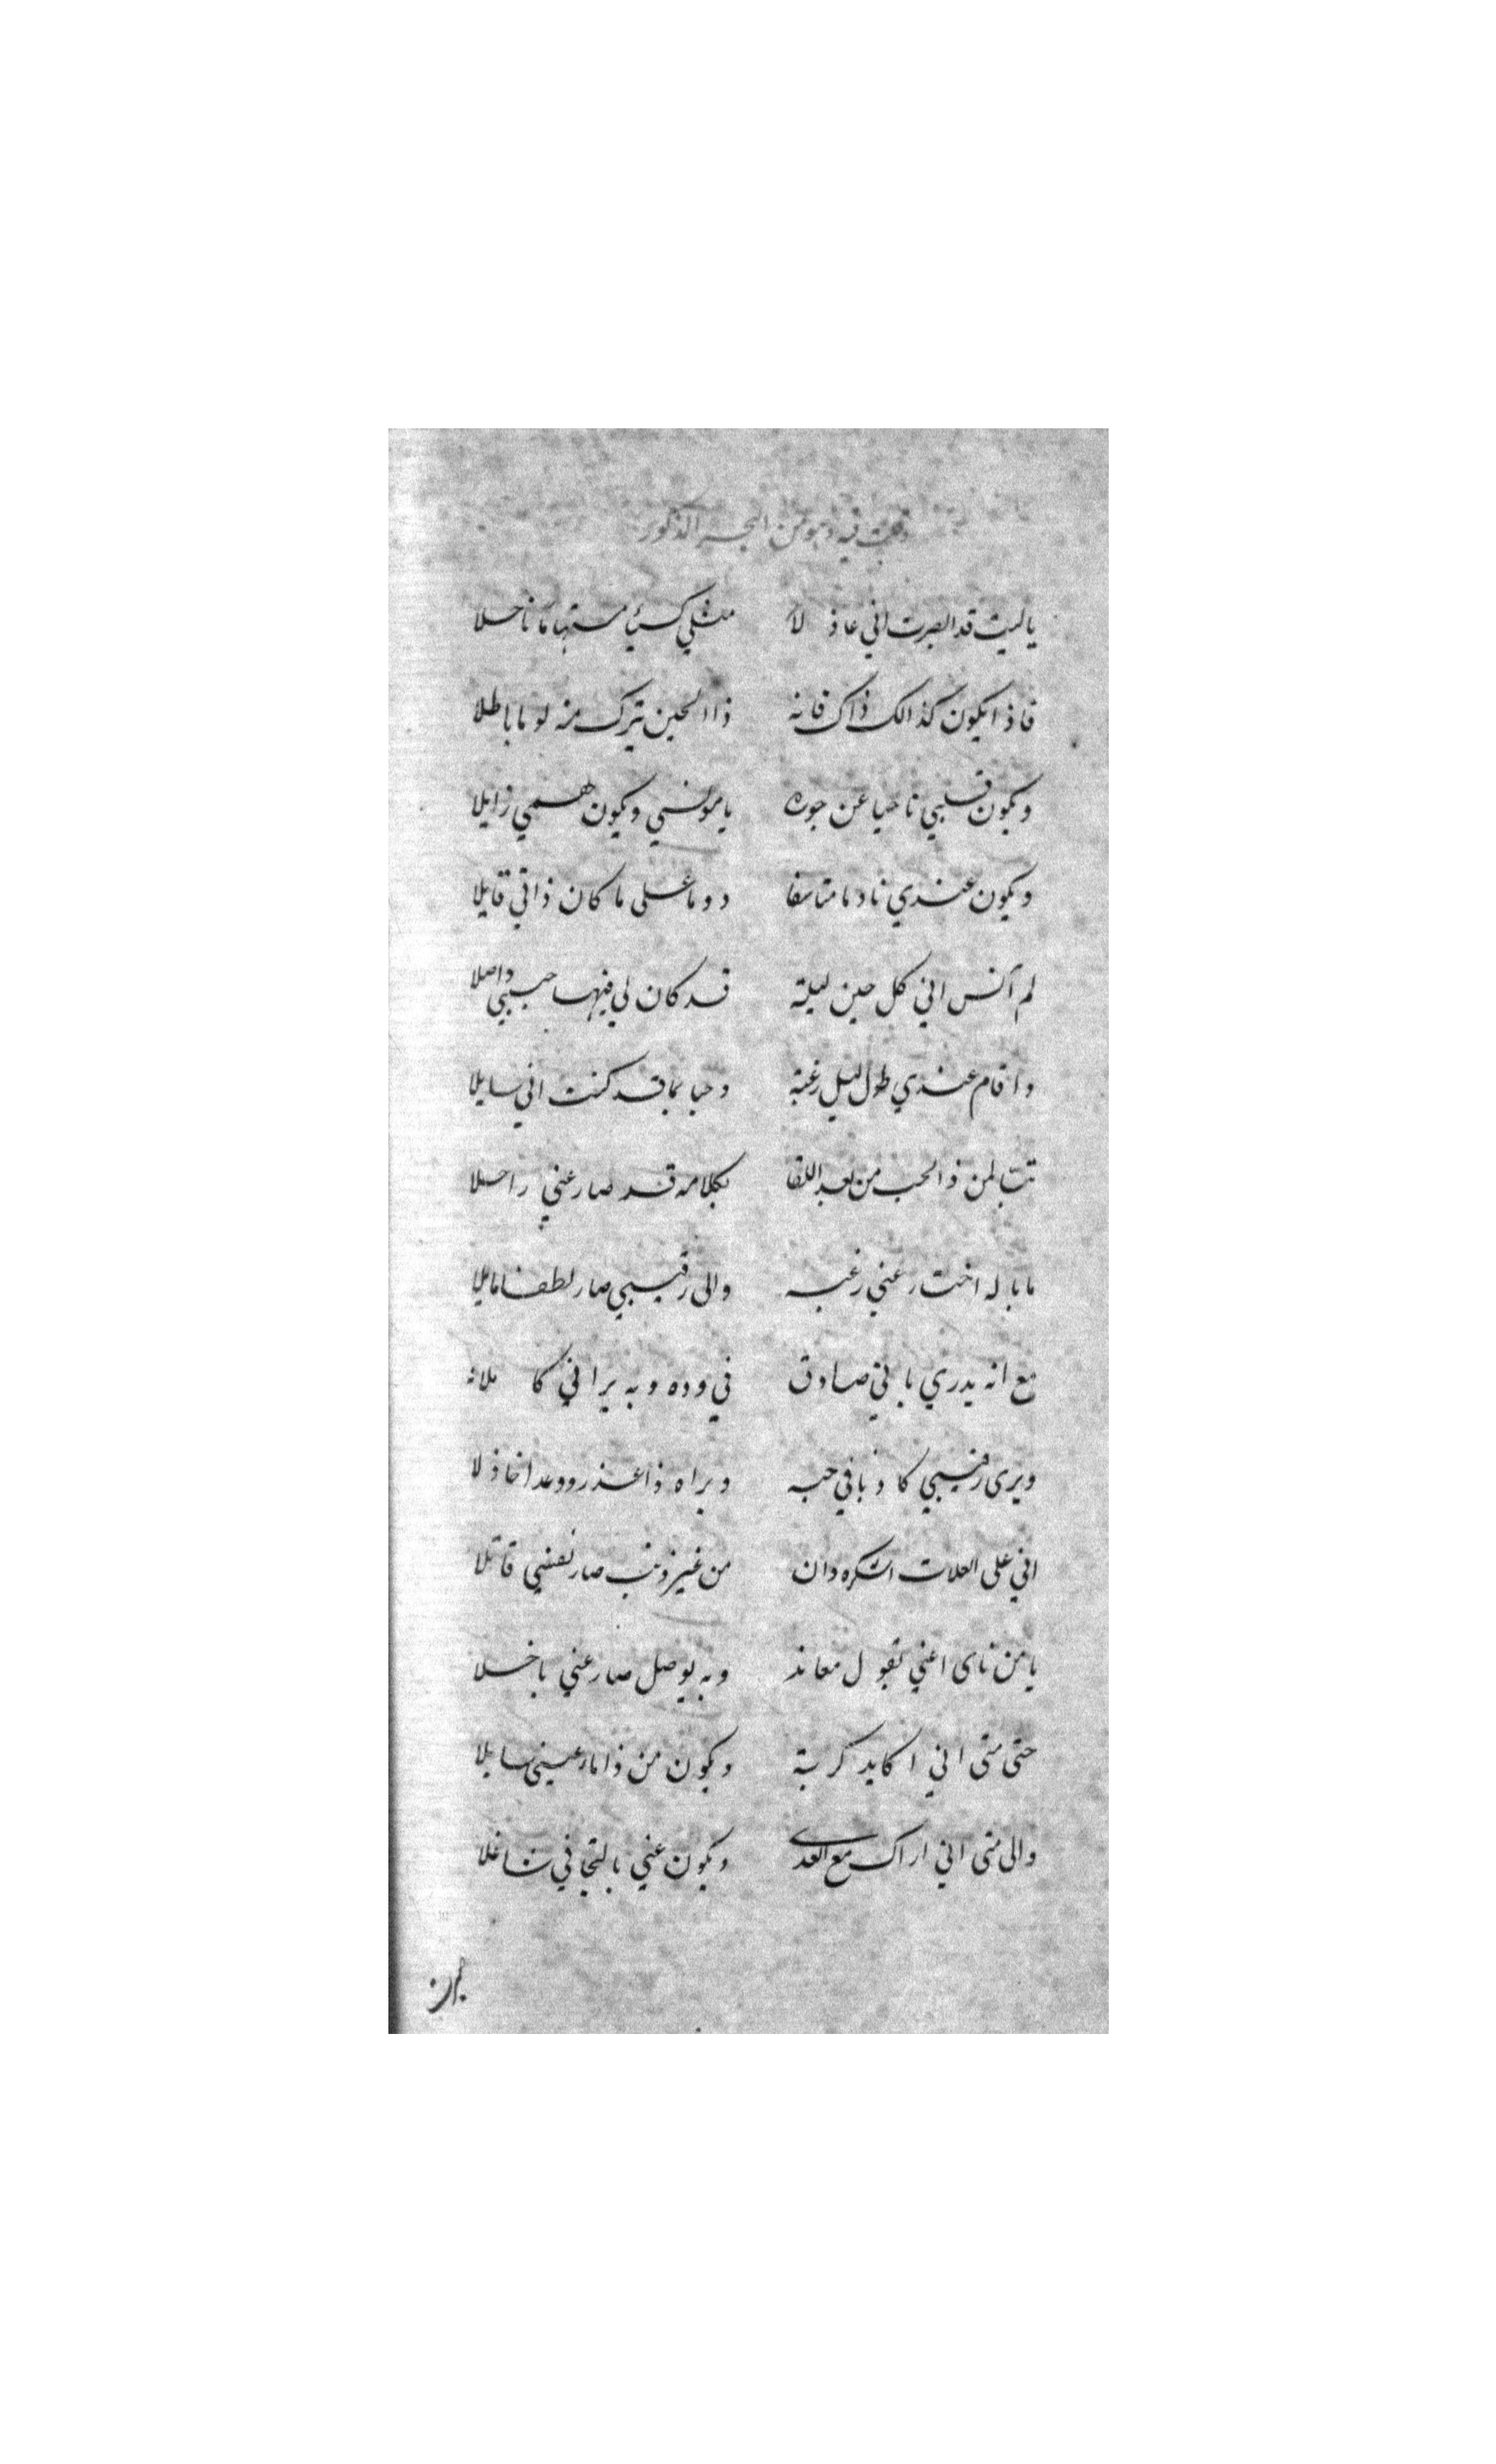 وقلت فيه وهو من البحر المذكور
ياليت قد ابصرت اني عاذ لا مثلي كئيبا مستهاما ناحلا
فاذا يكون كذالك ذاك فانه ذا الحين يترك منه لوما باطلا
ويكون قلبي ناحيا عن جوره يا مونسي ويكون همي زايلا
ويكون عندي نادما متاسفا دوما على ما كان ذاتي قايلا
لم آنس اني كل حين ليلة قد كان لي فيها حبيبي واصلا
واقام عندي طول ليل رغبة وحبا بما قد كنت اني سايلا
تبت لمن ذ الحب من بعد اللقا بكلامه قد صار عني راحلا
ما باله اختار عني رغبه والى رقيبي صار لطفا مايلا
مع انه يدري باني صادق في وده وبه يراني كا ملانه
ويرى رقيبي كاذبا في حبه ويراه ذا عذر ووعدا خاذلا
اني على العلات اشكره وان من غير ذنب صار نفسي قاتلا
يا من ناى عني بقول معاند وبه بوصل صار عني باخلا
حتى متى اني اكابد كربة ويكون من ذا ماء عيني سايلا
والى متى اني اراك مع العدى ويكون عني بالتجافي شاغلا